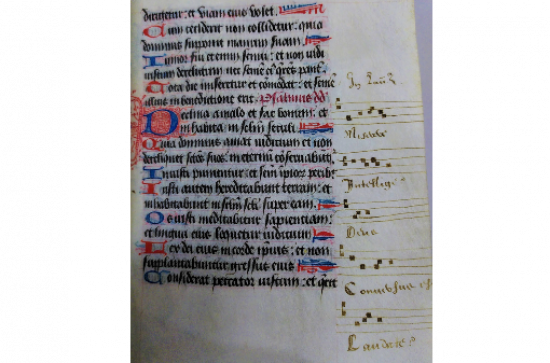 dirigetur: et viam eius volet.
Cum ceciderit non collidetur: quia
dominus supponit manum suam.
Iunior fui etenim senui: et non vidi
iustum derelictum nec semē eius q̄rēs panē.
Tota die miseretur et cōmodat: et semē
illius in benedictione erit. Psalmus
Declina a malo et fac bonum: et
inhabita in sclm seculi.
Quia dominus amat iudicium et non
derelinquet scōs suos: in eternū cōservabūt᷑.
Iniusti punientur: et semē impior̄ peribit
Iusti autem hereditabunt terram: et
inhabitabunt in sclm scli super eam.
Os iusti meditabitur sapientiam:
et lingua eius loquetur iudicium.
Lex dei eius in corde ipsius: et non
supplantabuntur gressus eius
Considerat peccator iustum: et querit
Miserere
Intellige
Conversus est
Laudate